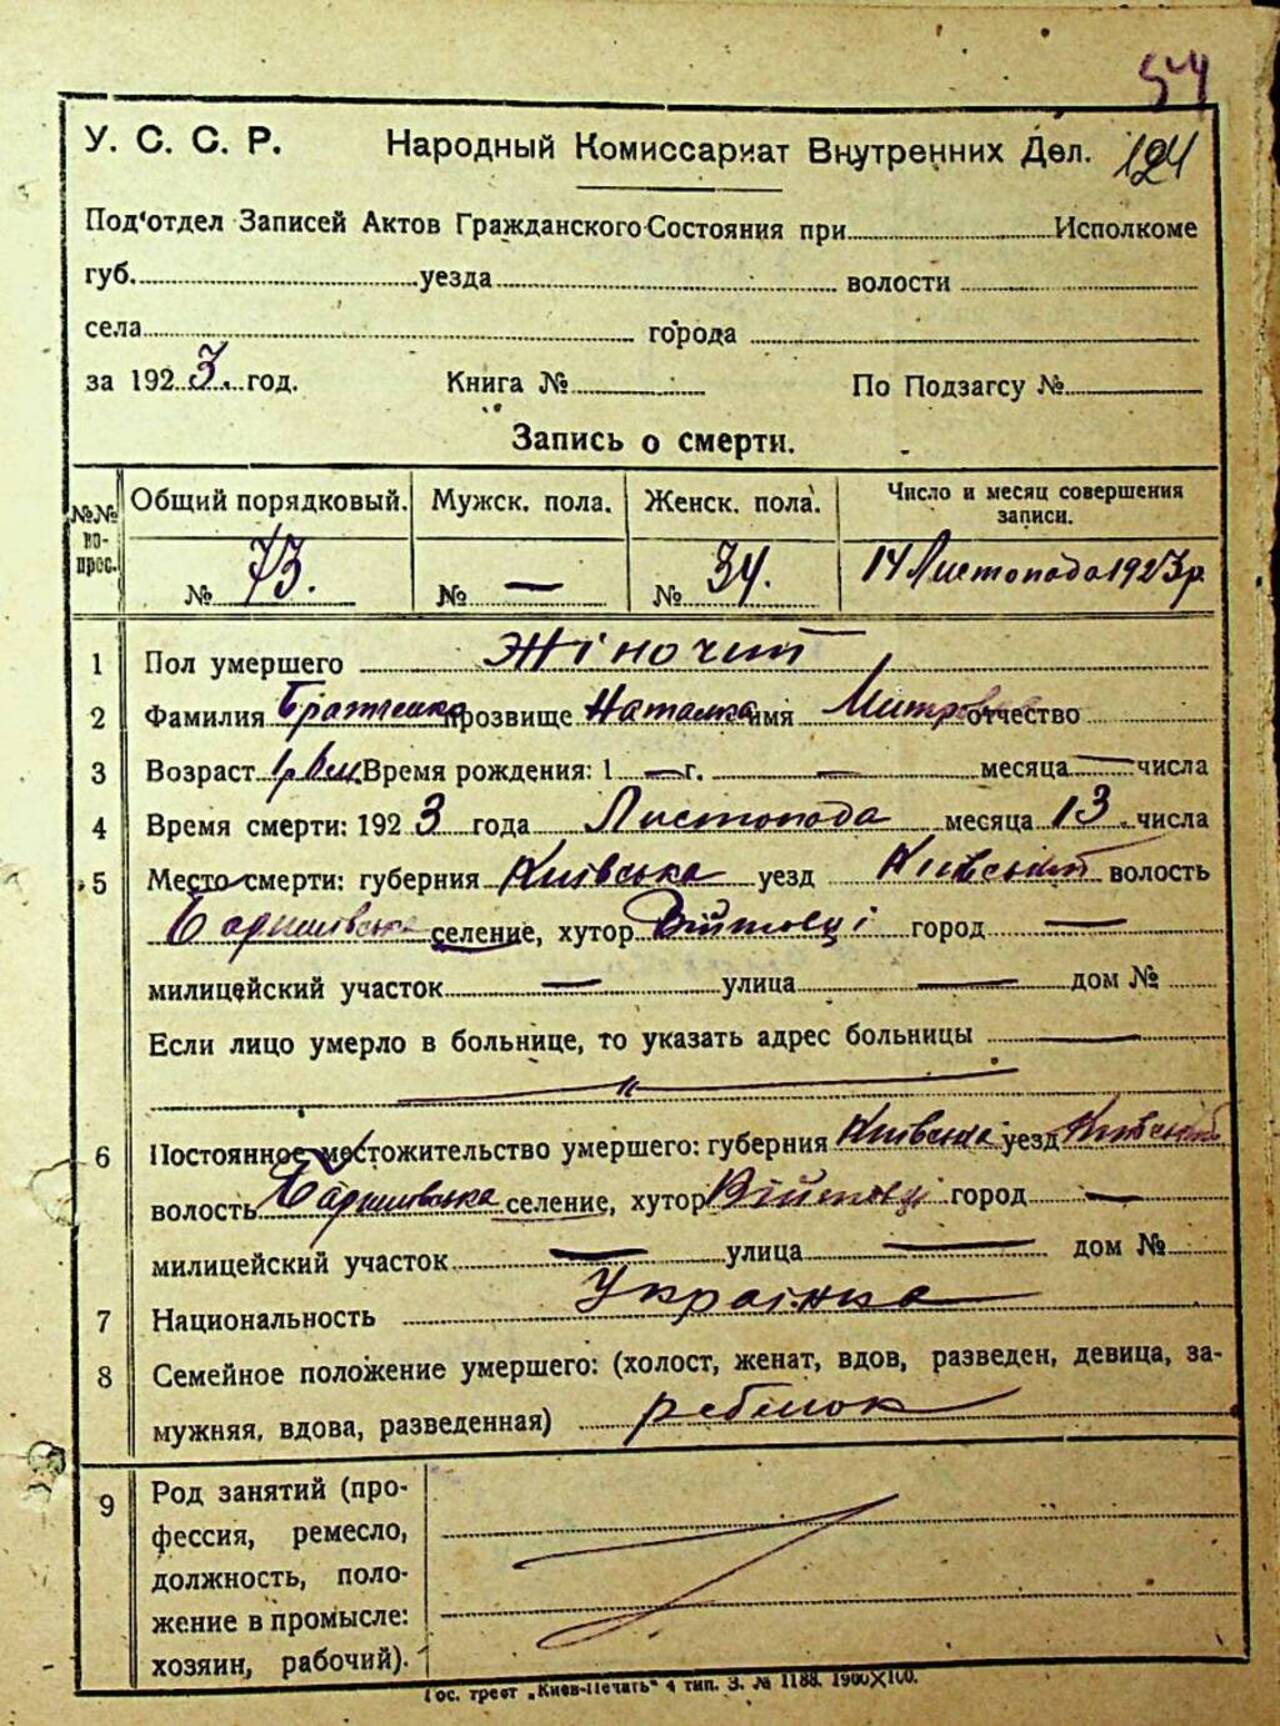 54
У. С. С. Р. Народный Комиссариат Внутренних Дел. 124
Под'отдел Записей Актов Гражданского Состояния при Исполкоме
губ. уезда волости
села города
за 1923. год. Книга № По Подзагсу №
Запись о смерти.
№№ вопрос. Общий порядковый. Мужск. пола. Женск. пола. Число и месяц совершения записи.
№ 73. № — № 34. 14 Листопада 1923 р.
1 Пол умершего Жіночий
2 Фамилия прозвище Наталка имя отчество
3 Возраст 1 р. Время рождения: 1 — г. — месяца — числа
4 Время смерти: 1923 года Листопада месяца 13. числа
5 Место смерти: губерния Київська уезд Київський волость
Баришівська селение, хутор Війтовці город —
милицейский участок — улица — дом №
Если лицо умерло в больнице, то указать адрес больницы —
— " —
6 Постоянное местожительство умершего: губерния Київська уезд Київський
волость Баришівська селение, хутор Війтовці город —
милицейский участок — улица — дом №
7 Национальность Українка
8 Семейное положение умершего: (холост, женат, вдов, разведен, девица, за-
мужняя, вдова, разведенная) ребінок
9 Род занятий (про-
фессия, ремесло,
должность, поло-
жение в промысле:
хозяин, рабочий).
Гос. трест „Киев-Печать" 4 тип. З. № 1188. 1900X100.